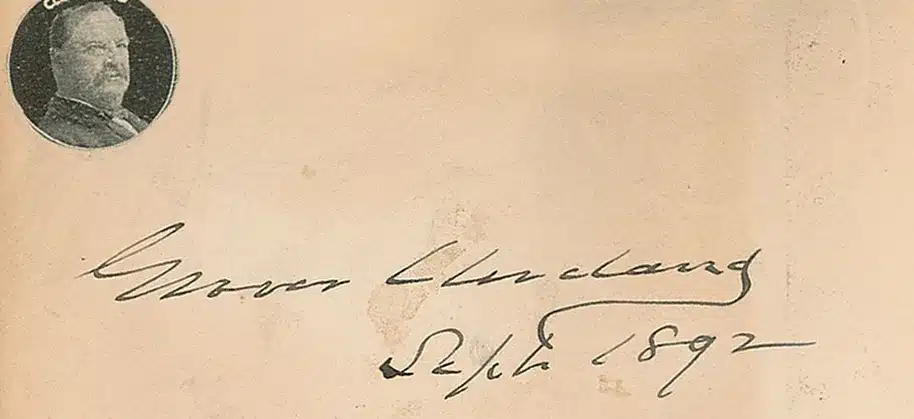 Grover Cleveland
Sept. 1892